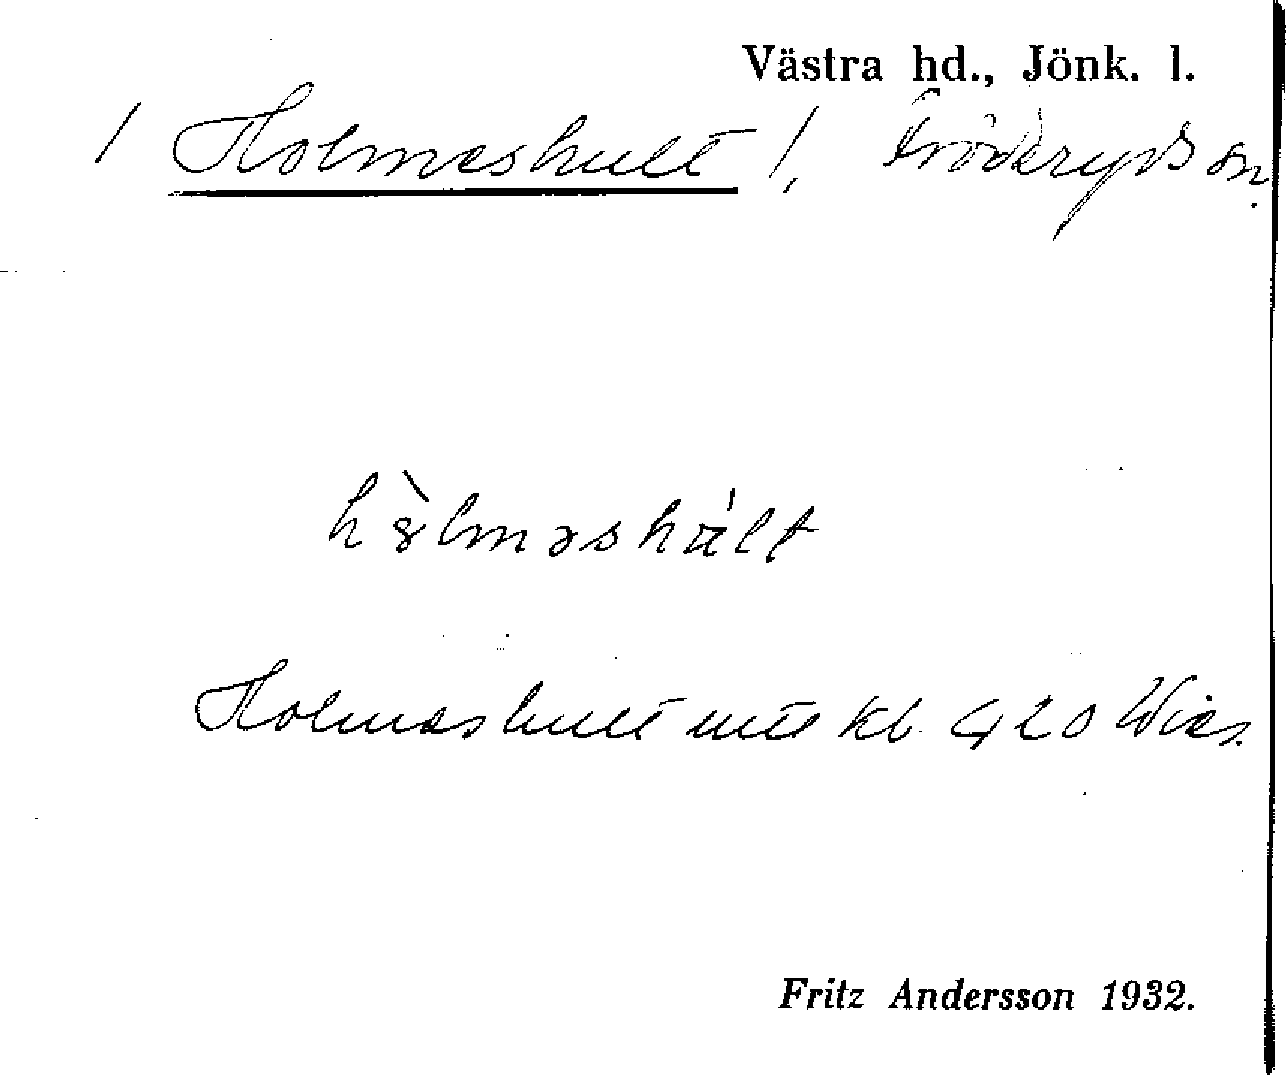 Västra hd., Jönk. l.
/ Holmeshult /, Fröderyds sn.
hòlməshált
Holmeshult mtl Kb. 420 Wies.
Fritz Andersson 1932.